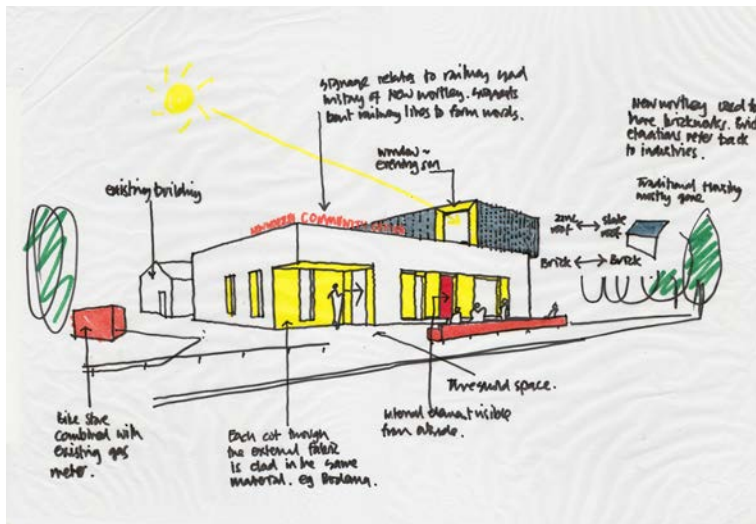 signage relates to railway yard
history of New Wortley. suggests
bent railway lines to form words.
New wortley used to
have brickworks. Brick
elevations refer back
to industries.
window ~
evening sun
existing building
Traditional Housing
mostly gone
COMMUNITY
zinc roof
slate roof
Brick
Brick
Threshold space.
internal element visible
from outside.
Bike store
combined with
existing gas
meter.
Each cut through
the external fabric
is clad in the same
material. eg